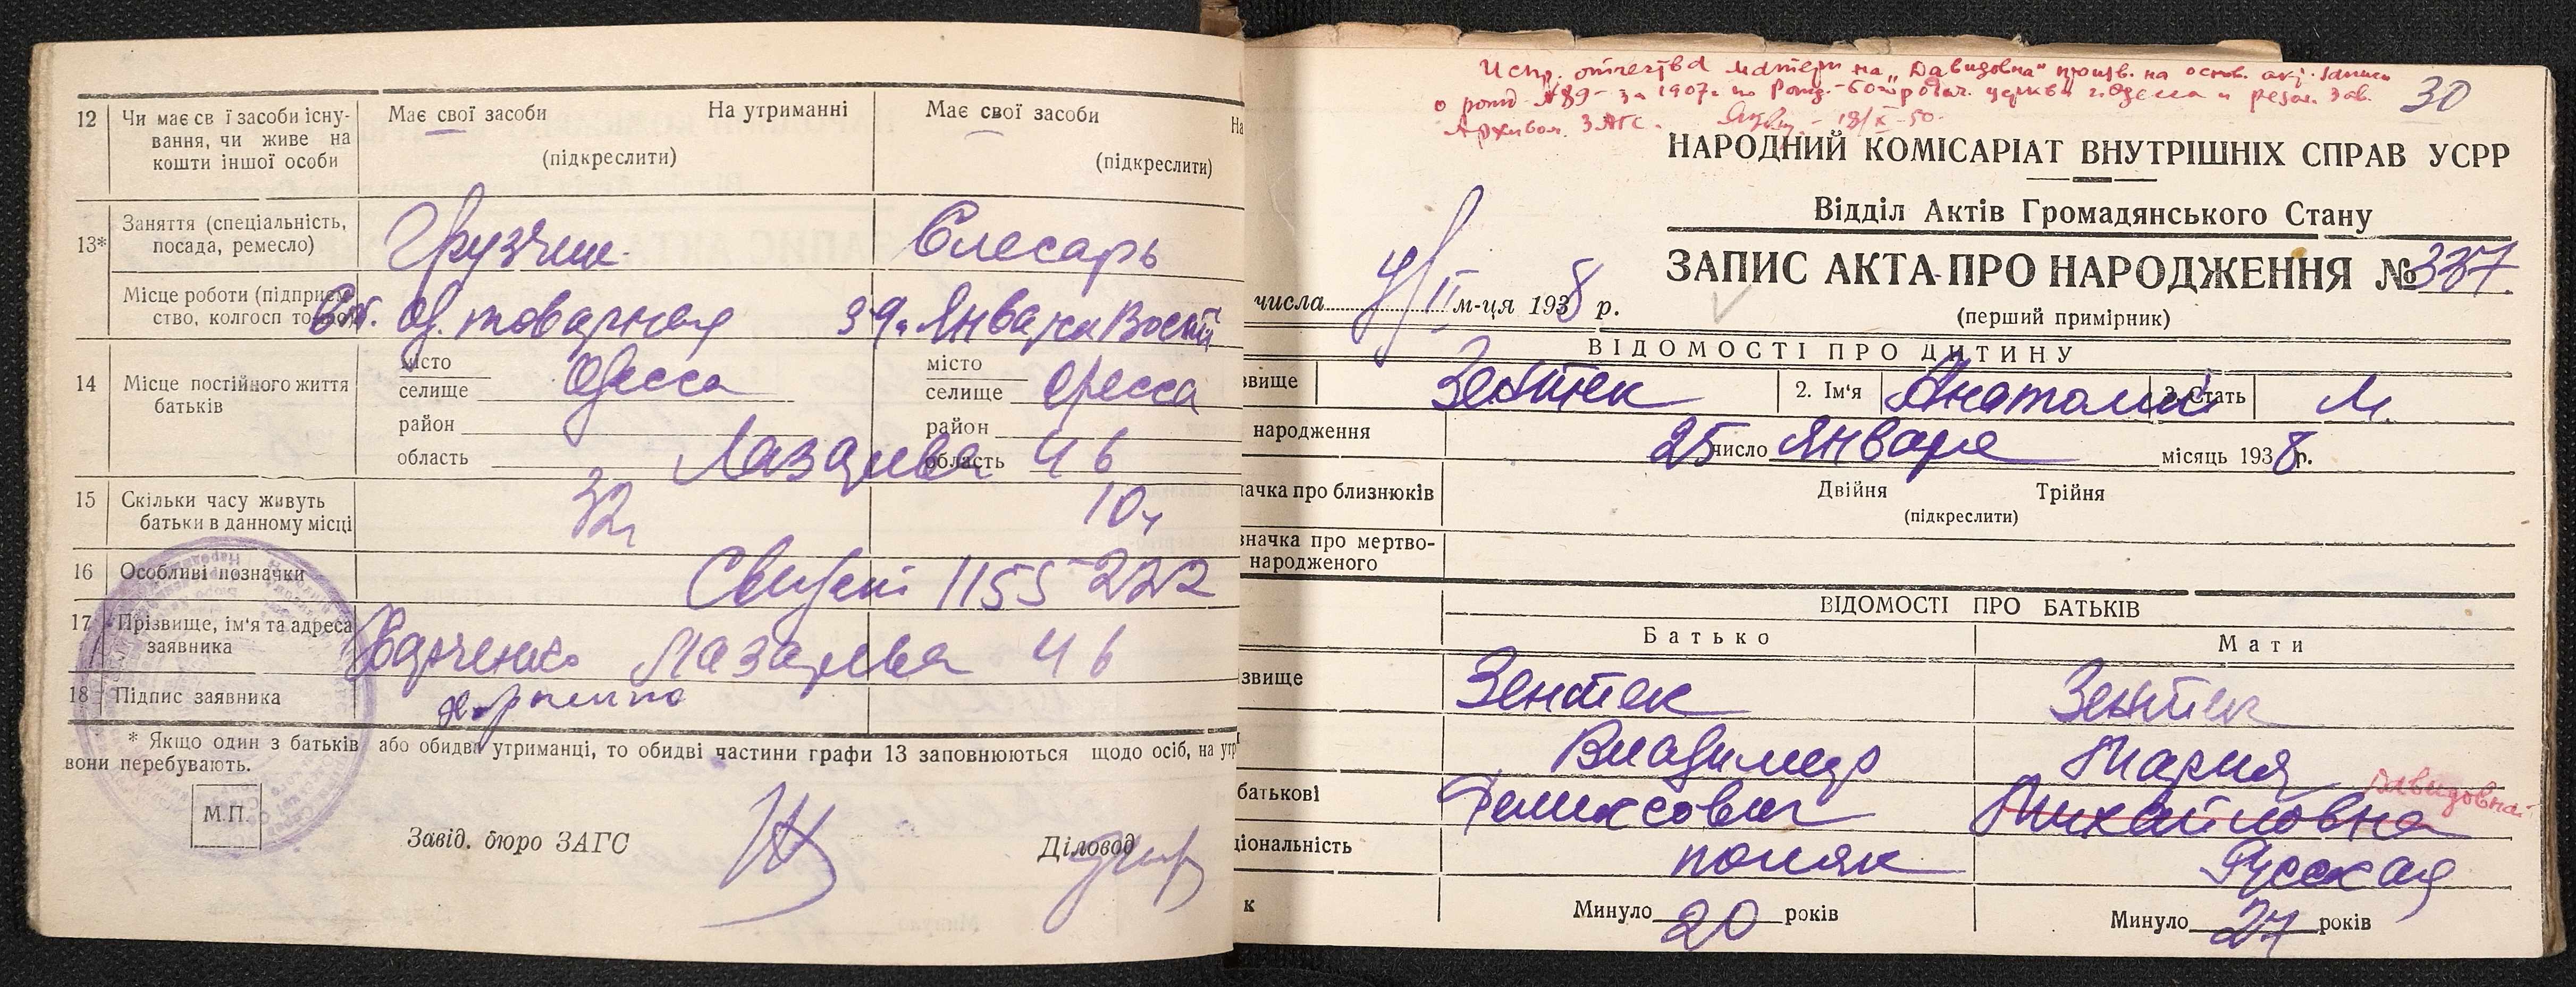 12 Чи має св ї засоби існу-
вання, чи живе на
кошти іншої особи
Має свої засоби На утриманні
(підкреслити)
Має свої засоби На
(підкреслити)
13* Заняття (спеціальність,
посада, ремесло)
Грузчик Слесарь
Місце роботи (підприєм
ство, колгосп то
Ст. Од. товарная Января
14 Місце постійного життя
батьків
місто
селище Одесса
район
область
місто
селище Одесса
район
область
Лазарева 46
15 Скільки часу живуть
батьки в данному місці
32 10
16 Особливі позначки
1155 222
17 Прізвище, ім'я та адреса
заявника
Харченко Лазарева 46
18 Підпис заявника
Харченко
* Якщо один з батьків або обидва утриманці, то обидві частини графи 13 заповнюються щодо осіб, на утр
вони перебувають.
М.П.
Завід. бюро ЗАГС Діловод
Испр. отчества матери на „Давидовна" произв. на основ. акт. записи
о рожд. №89 за 1907г. по церкви г. Одесса и резол. Зав.
Архивом ЗАГС. 18/X-50.
30
НАРОДНИЙ КОМІСАРІАТ ВНУТРІШНІХ СПРАВ УСРР
Відділ Актів Громадянського Стану
ЗАПИС АКТА ПРО НАРОДЖЕННЯ № 337.
числа 4/II м-ця 1938 р.
(перший примірник)
ВІДОМОСТІ ПРО ДИТИНУ
звище Зентек 2. Ім'я Анатолий 3. Стать М.
народження 25 число Января місяць 1938 р.
ачка про близнюків Двійня Трійня
(підкреслити)
значка про мертво-
народженого
ВІДОМОСТІ ПРО БАТЬКІВ
Батько Мати
звище Зентек Зентек
Владимир Мария
Давидовна
батькові Феликсович Михайловна
ціональність поляк Русская
к Минуло 20 років Минуло 27 років